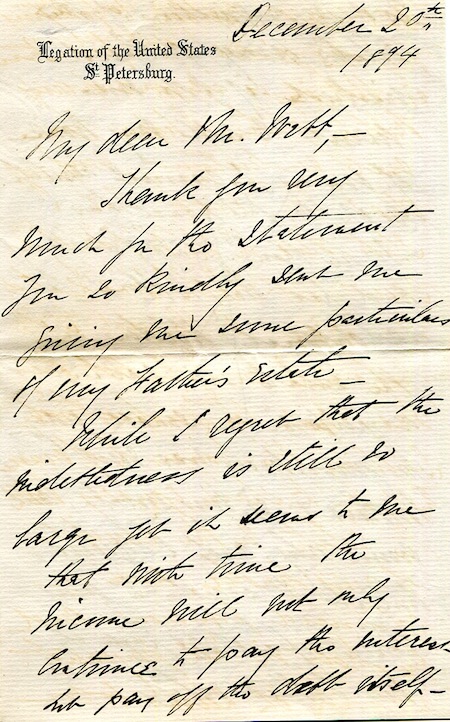 December 20th
1894
Legation of the United States
St Petersburg.
My dear Mr. Webb,—
Thank you very
much for the statement
you so kindly sent me
giving me some particulars
of my Father's Estate—
While I regret that the
indebtedness is still so
large yet it seems to me
that with time the
income will not only
continue to pay the interest
but pay off the debt itself—